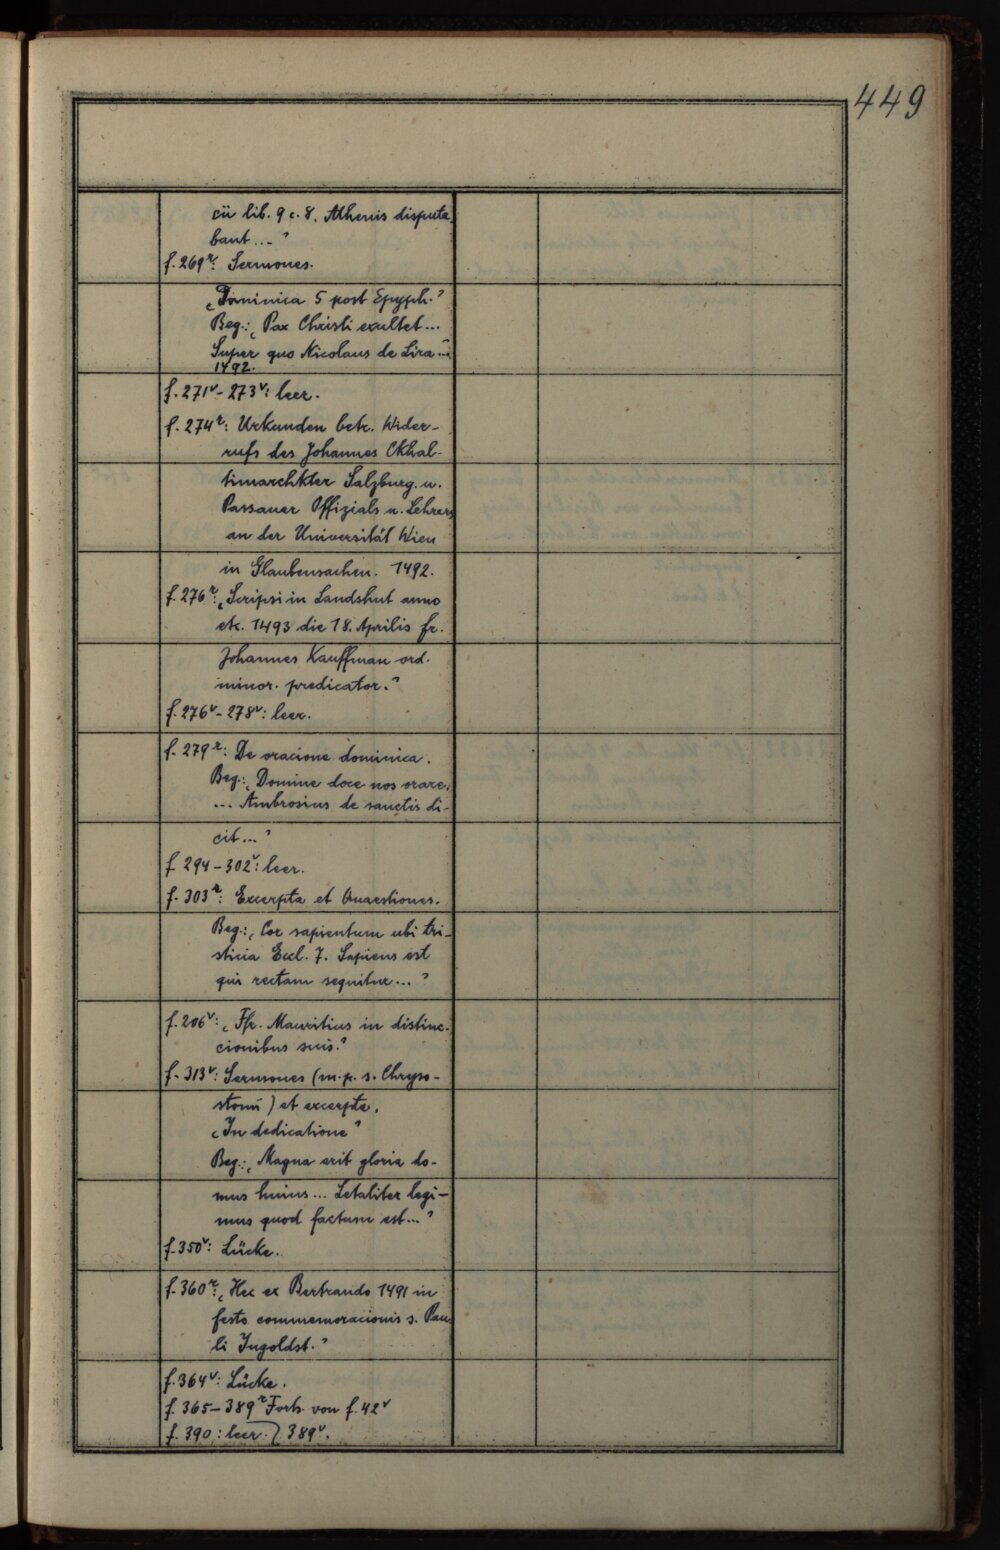 449
cū lib. 9 c. 8. Athenis disputa
bant ... "
f. 269r: Sermones.
„Dominica 5 post Epyph."
Beg.: „Pax Christi exultet ...
Super quo Nicolaus de Lira ..."
1492.
f. 271v - 273v: leer.
f. 274r: Urkunden betr. Wider-
rufs des Johannes Ckhal-
timarchkter Salzburg. u.
Passauer Offizials u. Lehrers
an der Universität Wien
in Glaubensachen. 1492.
f. 276r: „Scripsi in Landshut anno
etc. 1493 die 18. Aprilis fr.
Johannes Kauffman ord.
minor. predicator."
f. 276v - 278v: leer.
f. 279r: De oracione dominica.
Beg.: „Domine doce nos orare,
... Ambrosius de sanctis di-
cit ..."
f 294 - 302v: leer.
f. 303r: Excerpta et Quaestiones.
Beg.: „Cor sapientum ubi tri-
sticia Eccl. 7. Sapiens est
qui rectam sequitur ... "
f. 206v: „Ffr. Mauritius in distinc-
cionibus suis."
f. 313v: Sermones (m. p. s. Chryso-
stomi) et excerpta.
„In dedicatione"
Beg.: „Magna erit gloria do-
mus huius ... Letaliter legi-
mus quod factum est ... "
f. 350v: Lücke.
f. 360r: „Hec ex Bertrando 1491 in
festo commemoracionis s. Pau
li Ingoldst."
f. 364v: Lücke.
f. 365 - 389r Forts. von f. 42v
f. 390: leer. 389v.